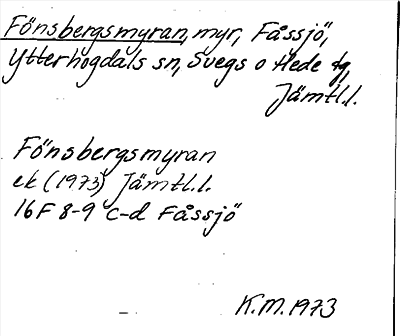 Fönsbergsmyran, myr, Fåssjö,
Ytterhogdals sn, Svegs o Hede tg,
Jämtl.l.
Fönsbergsmyran
ek (1973) Jämtl.l.
16F 8-9 c-d Fåssjö
K.M. 1973